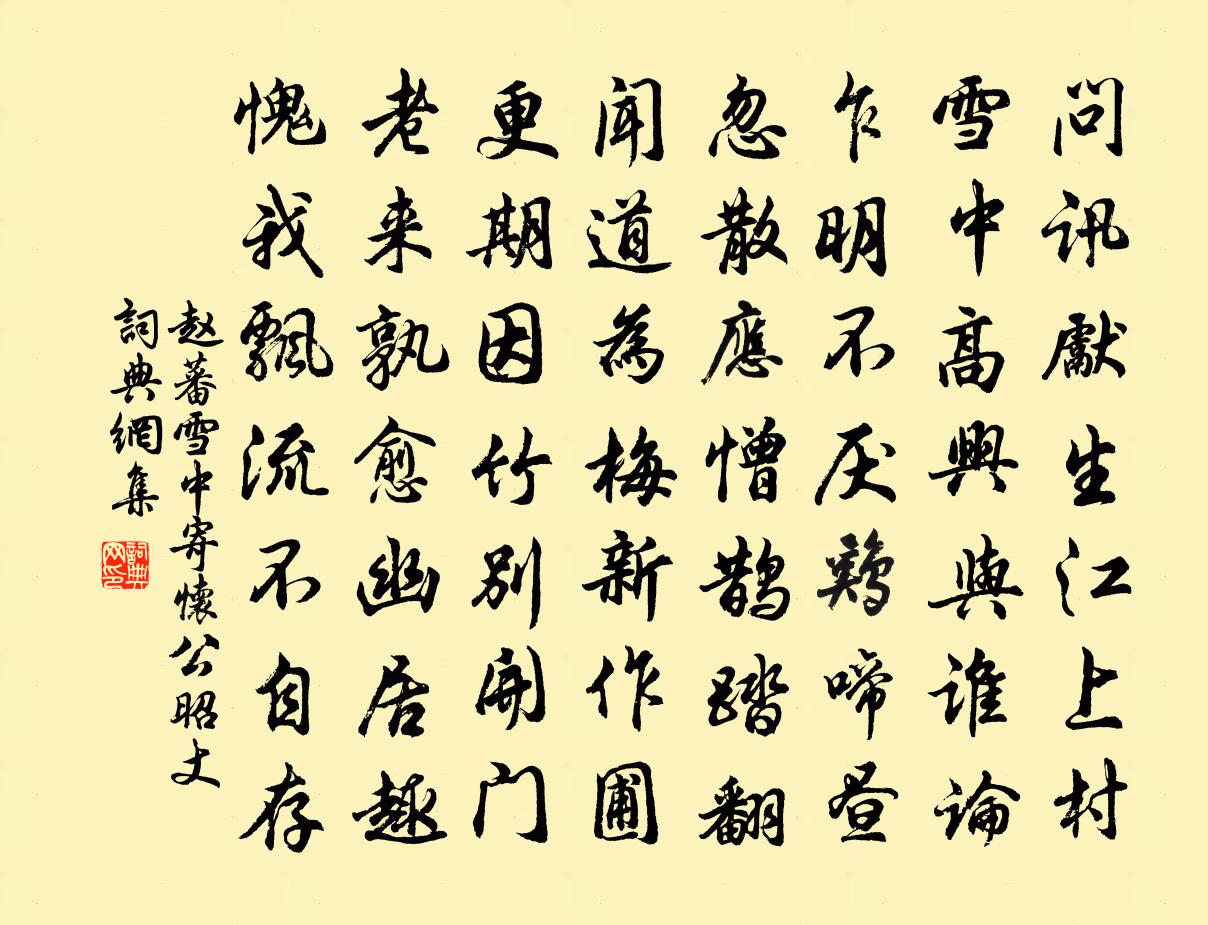 问讯獻生江上村
雪中高興與谁論
乍明不厌鷄啼昼
忽散應憎鹊踏翻
闻道為梅新作圃
更期因竹别開门
老来孰愈幽居趣
愧我飄流不自存
赵蕃雪中寄懷公昭丈
詞典網集
詞典网印